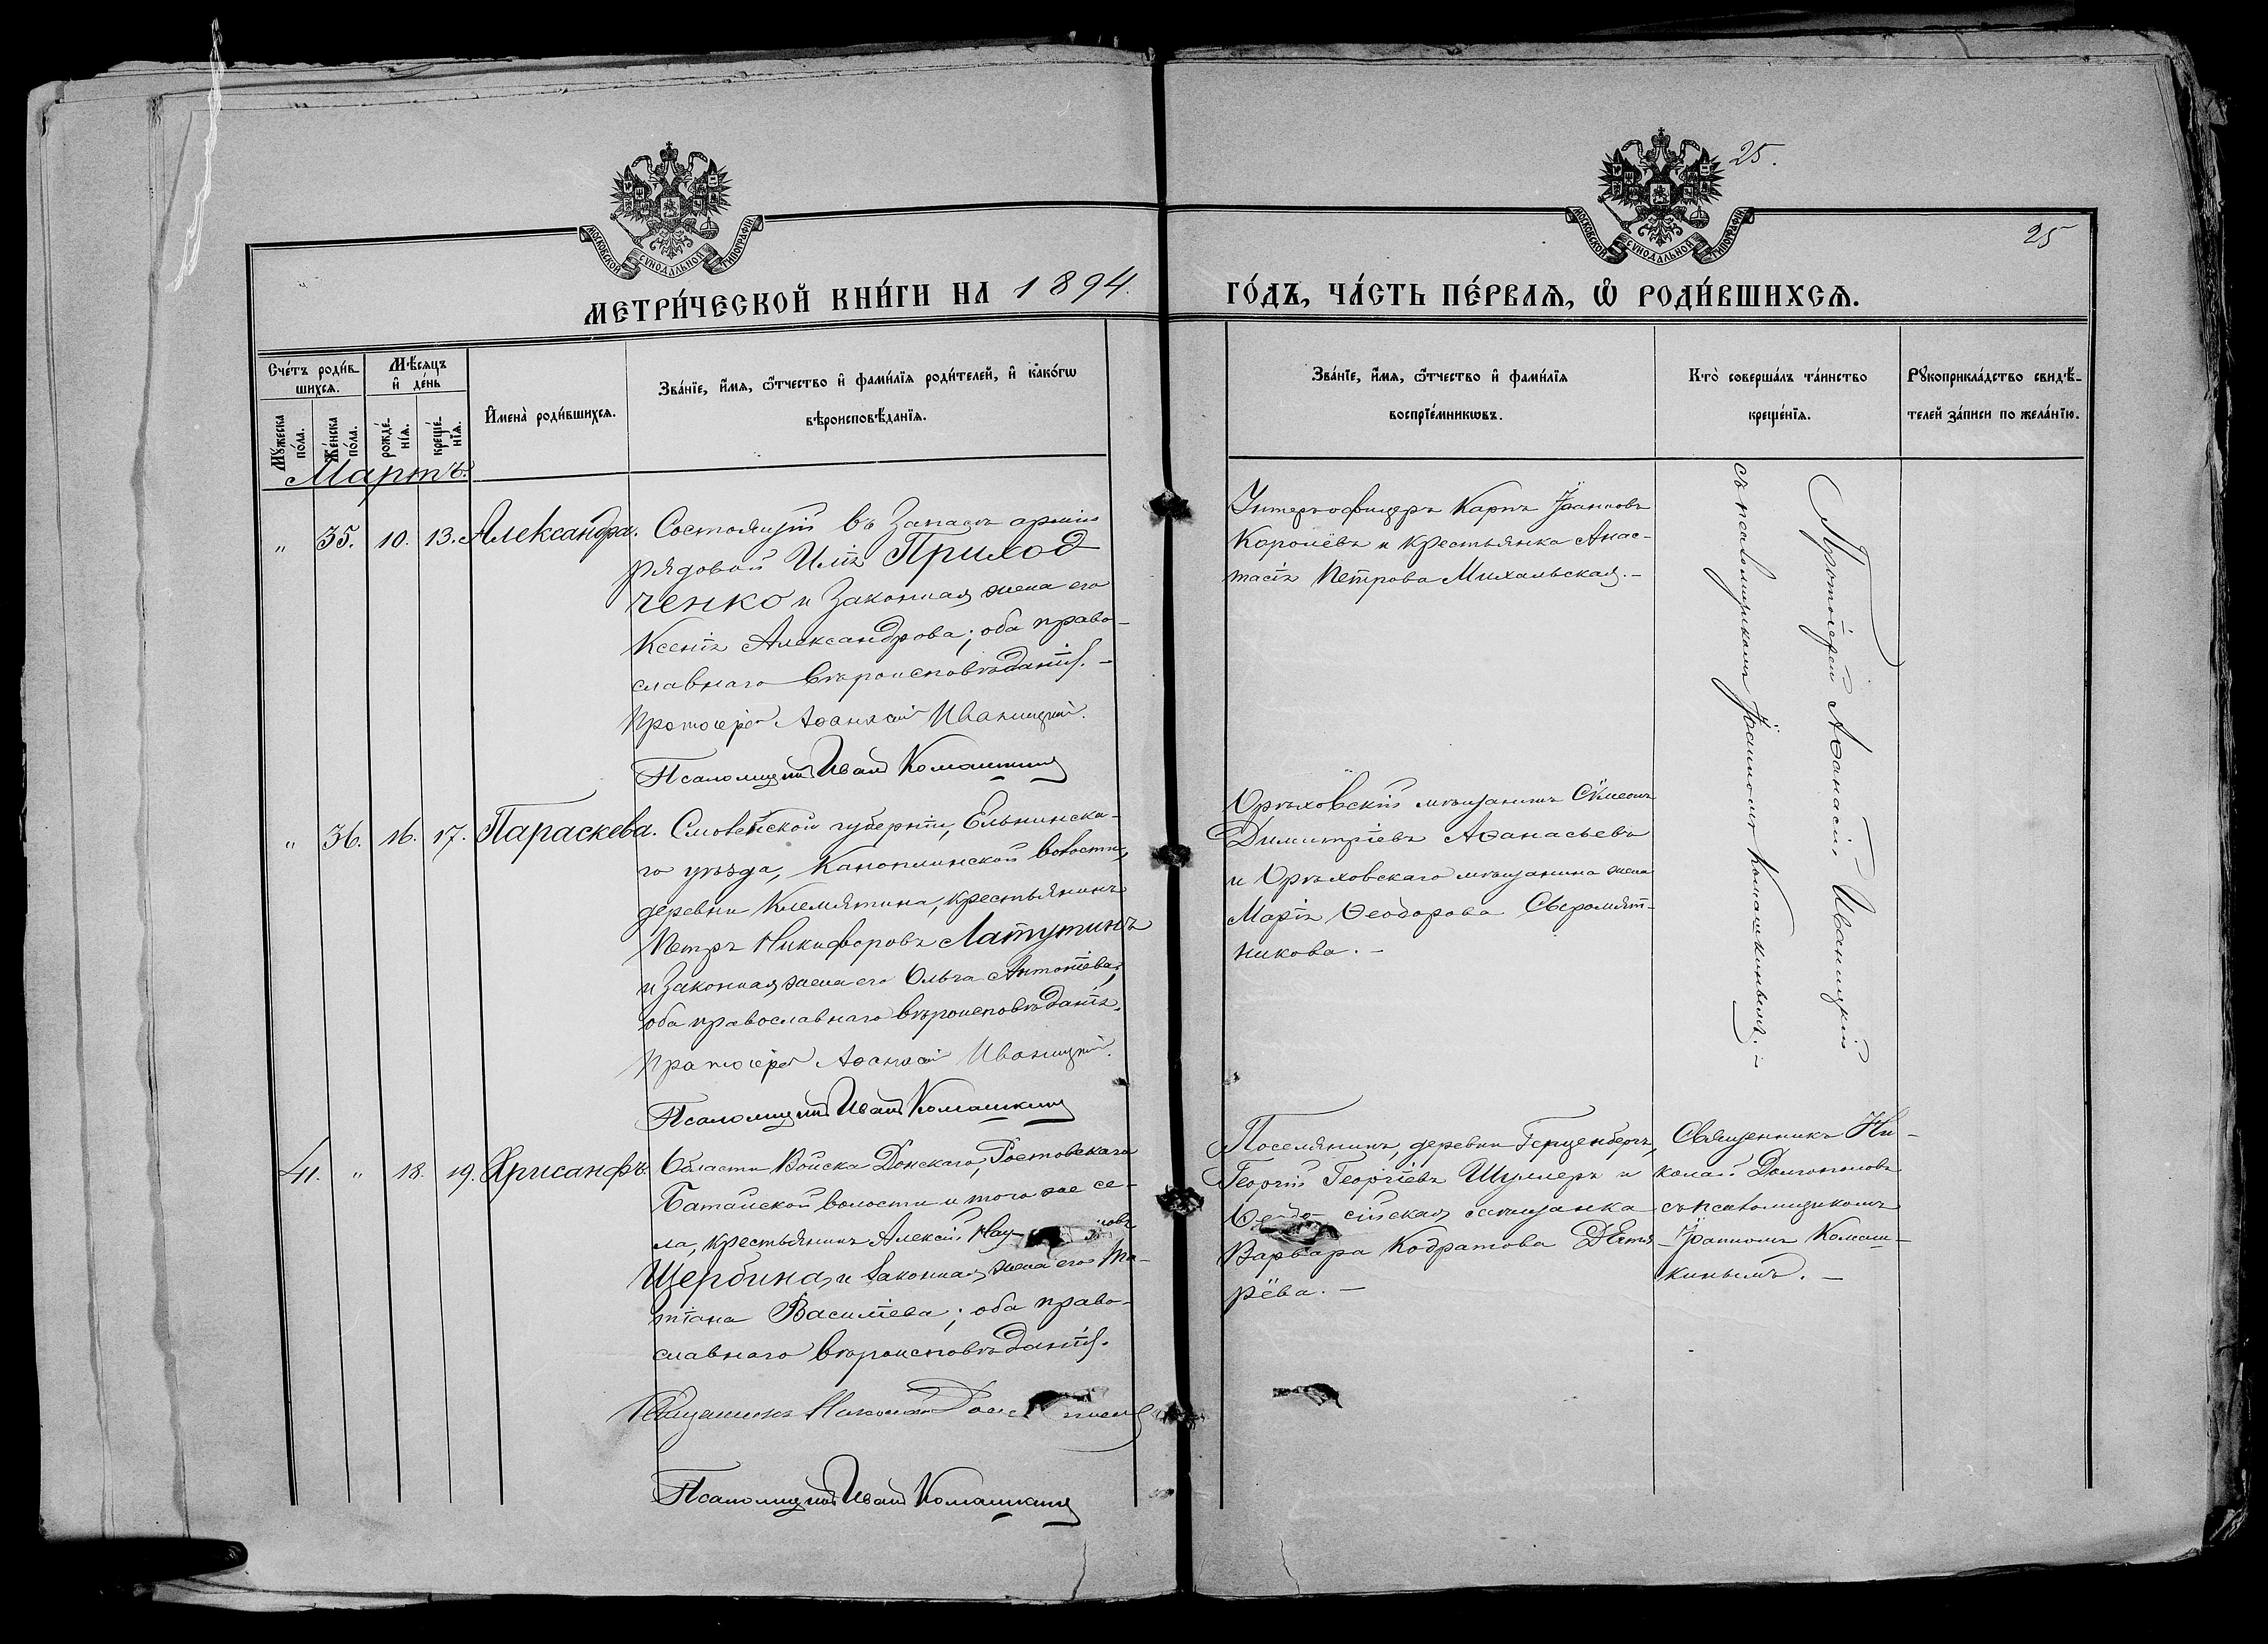 25.
25
МОСКОВСКОЙ СѴНОДАЛЬНОЙ ТИПОГРАФІИ
МОСКОВСКОЙ СѴНОДАЛЬНОЙ ТИПОГРАФІИ
МЕТРИ́ЧЕСКОЙ КНИ́ГИ НА 1894. ГО́ДЪ, ЧА́СТЬ ПЕ́РВАѦ, Ѡ РОДИ́ВШИХСѦ.
Сче́тъ роди́в
шихсѧ.
Мꙋ́жеска
по́ла.
Же́нска
по́ла.
Мѣ́сѧцъ
и҆ де́нь
рожде́
нїѧ.
креще́
нїѧ.
И҆мена̀ роди́вшихсѧ.
Зва́нїе, и҆́мѧ, ѻ҆́тчество и҆ фами́лїѧ роди́телей, и҆ како́гѡ
вѣроисповѣ́данїѧ.
Зва́нїе, и҆́мѧ, ѻ҆́тчество и҆ фами́лїѧ
воспрїе́мникѡвъ.
Кто̀ соверша́лъ та́инство
креще́нїѧ.
Рꙋкоприкла́дство свидѣ́-
телей за́писи по жела́нїю.
Мартъ.
" 35. 10. 13. Александра. Состоящій въ Запасѣ арміи
рядовой Илія Приход
ченко и Законная жена его
Ксенія Александрова; оба право-
славнаго Вѣроисповѣданія. –
Протоіерей Аѳанасій Иваницкій.
Псаломщикъ Иванъ Комашкинъ
Унтеръ-офицеръ Карпъ Іоанновъ
Королёвъ и крестьянка Анас-
тасія Петрова Михальская. –
Протоіерей Аѳанасій Иваницкій
съ псаломщикомъ Іоанномъ Комашкинымъ. –
" 36. 16. 17. Параскева. Смоленской губерніи, Ельнинска-
го уѣзда, Каноплинской волости,
деревни Клемятина, крестьянинъ
Петръ Никифоровъ Латутинъ
и Законная жена его Ольга Антоніева,
оба православнаго вѣроисповѣданія.
Протоіерей Аѳанасій Иваницкій.
Псаломщикъ Иванъ Комашкинъ
Орѣховскій мѣщанинъ Сѵмеонъ
Димитріевъ Аѳанасьевъ
и Орѣховскаго мѣщанина жена
Марія Ѳеодорова Сыромят-
никова. –
41. " 18. 19. Хрисанфъ. Области Войска Донскаго, Ростовскаго
Батайской волости и того же се-
ла, крестьянинъ Алексій
Щербина, и Законная жена его Та-
тіана Василіева; оба право-
славнаго вѣроисповѣданія.
Священникъ Николай
Псаломщикъ Иванъ Комашкинъ
Поселянинъ, деревни Герценбергъ,
Георгій Георгіевъ Шуллеръ и
мѣщанка
Варвара Кодратова Дегтя-
рёва. –
Священникъ Ни-
колай Долгополовъ
съ псаломщикомъ
Іоанномъ Комаш-
кинымъ. –